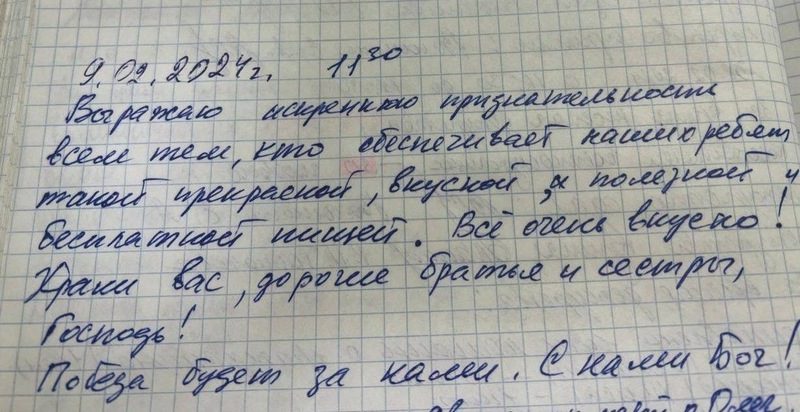 9.02.2024г. 11³⁰
Выражаю искреннюю признательность
всем тем, кто обеспечивает наших ребят
такой прекрасной, вкусной, и полезной и
бесплатной пищей. Всё очень вкусно!
Храни вас, дорогие братья и сестры,
Господь!
Победа будет за нами. С нами Бог!